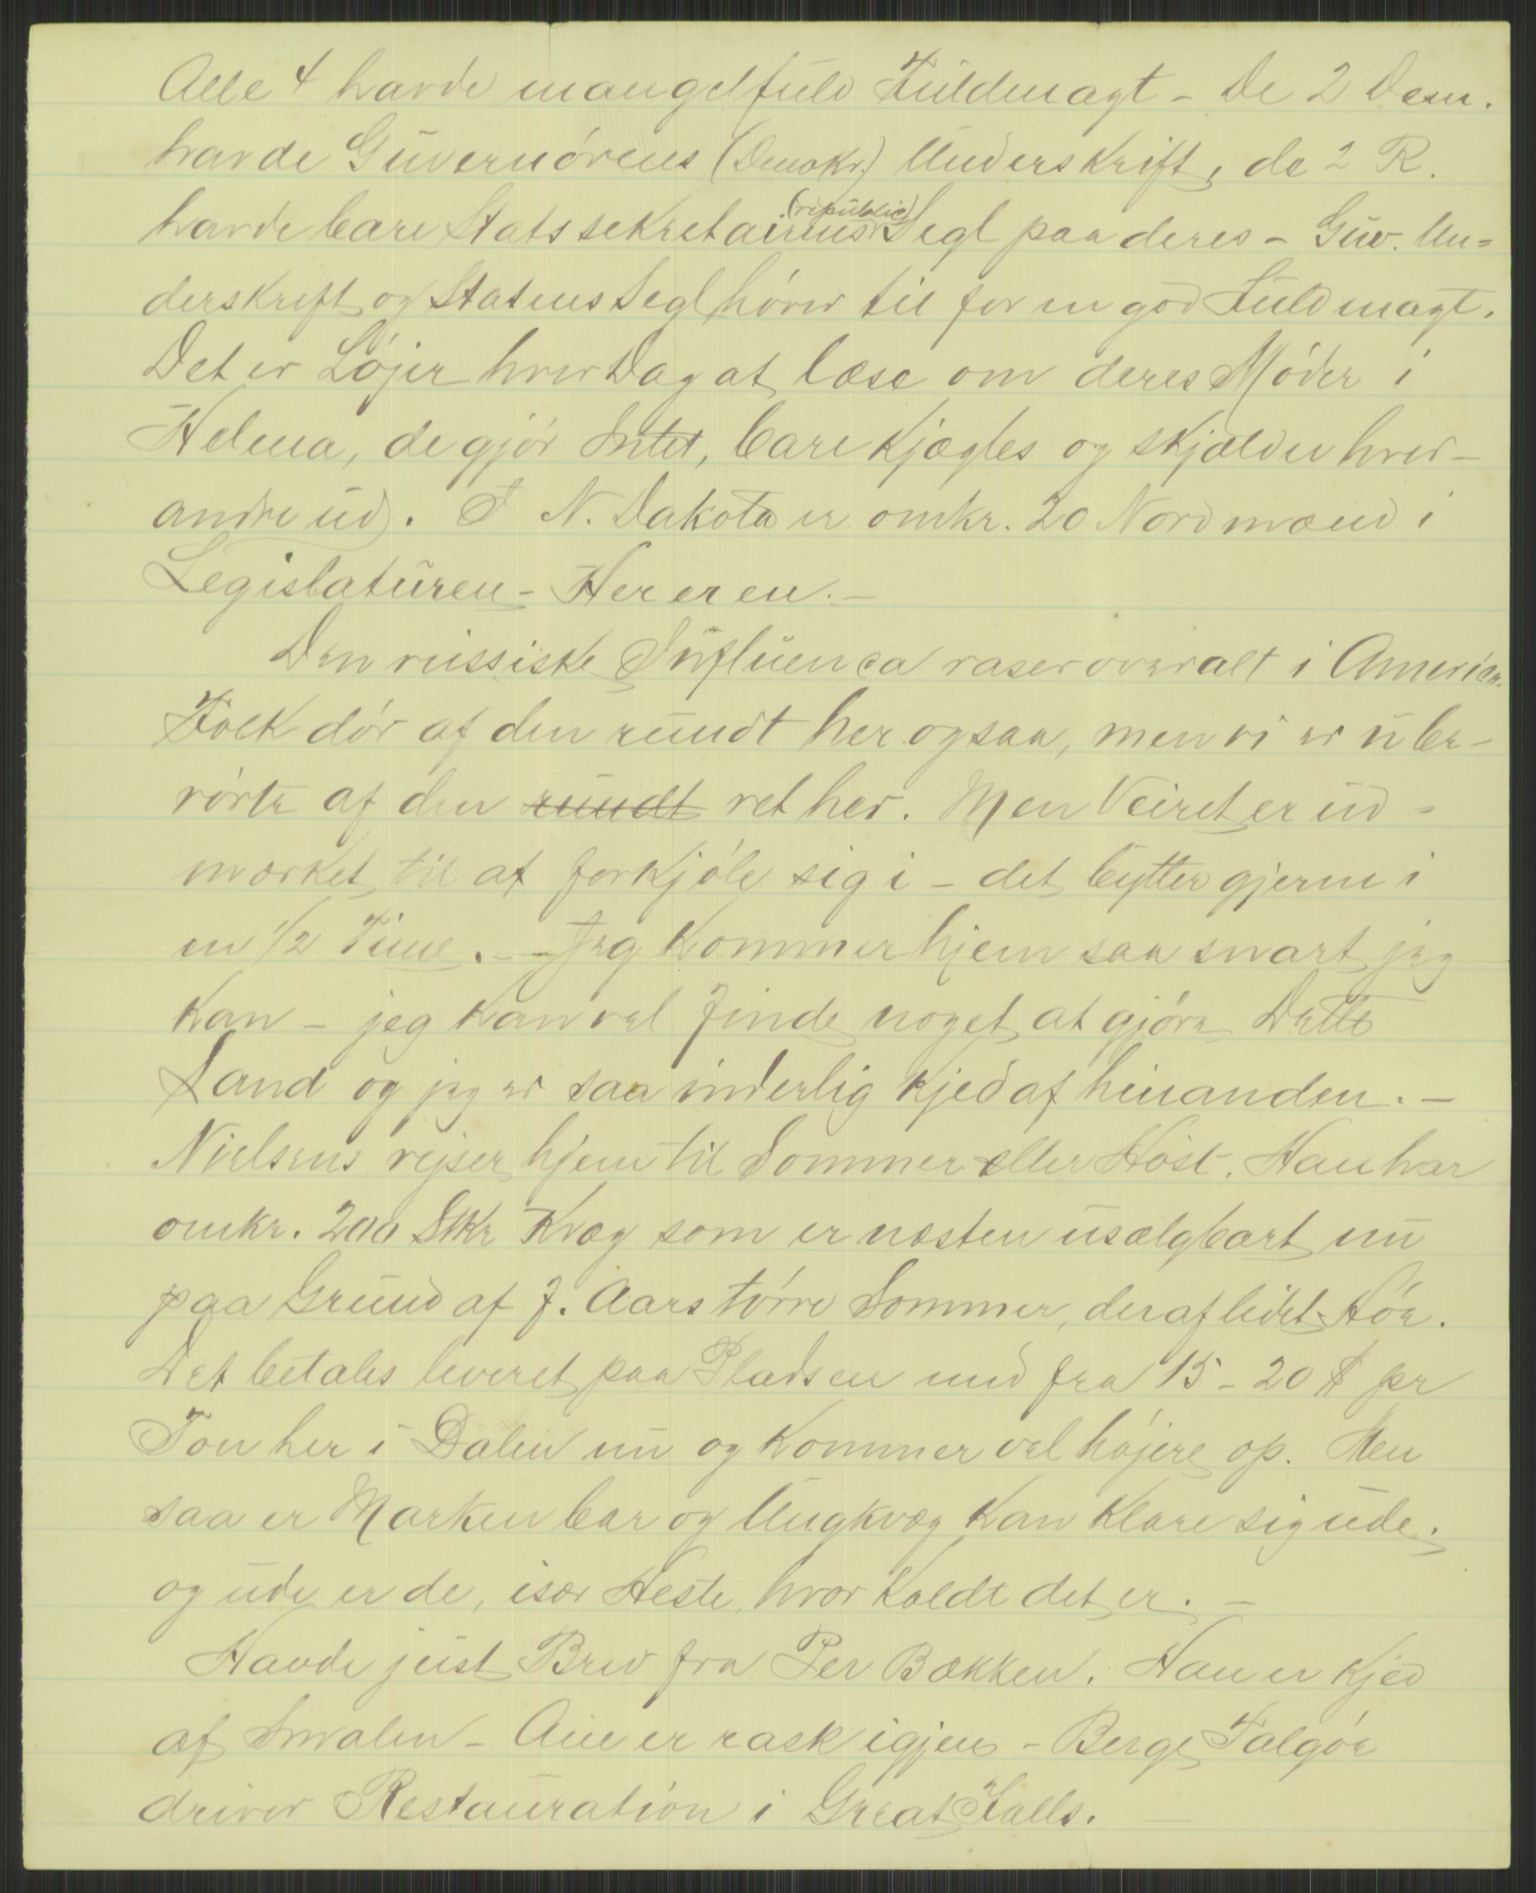 Alle 4 havde mangelfuld Fuldmagt - De 2 Dem.
havde Guvernórens (Demokr.) Underskrift, de 2 R.
havde bare Statssekretairens (republic) Segl paa deres - Guv. Un=
derskrift og Statens Segl hórer til for en god Fuldmagt.
Det er Löjer hver Dag at læse om deres Móder i
Helena, de gjór Intet, bare kjægles og skjælder hver-
andre ud. I N. Dakota er omkr. 20 Nordmænd i
Legislaturen - Her er en. -
Den russiske Influenca raser overalt i America.
Folk dór af den rundt her ogsaa, men vi er ube-
rórte af den rundt ret her. Men Veiret er ud-
mærket til at forkjóle sig i - det bytter gjerne i
en 1/2 Time. - Jeg kommer hjem saa snart jeg
kan - jeg kan vel finde noget at gjóre Dette
Land og jeg er saa inderlig kjed af hinanden. -
Nielsens rejser hjem til Sommer eller Höst. Han har
omkr. 200 Stkr Kvæg som er næsten usælgbart nu
paa Grund af f. Aars tórre Sommer, deraf lidet Hóe.
Det betales leveret paa Pladsen med fra 15 - 20 $ pr
Ton her i Dalen nu og kommer vel höjere op. Men
saa er Marken bar og Ungkvæg kan klare sig ude.
og ude er de, især Heste, hvor koldt det er. -
Havde just Brev fra Per Bækken. Han er kjed
af Svalen - Ane er rask igjen - Berge Talgóe
driver Restauratión i Great Falls. -